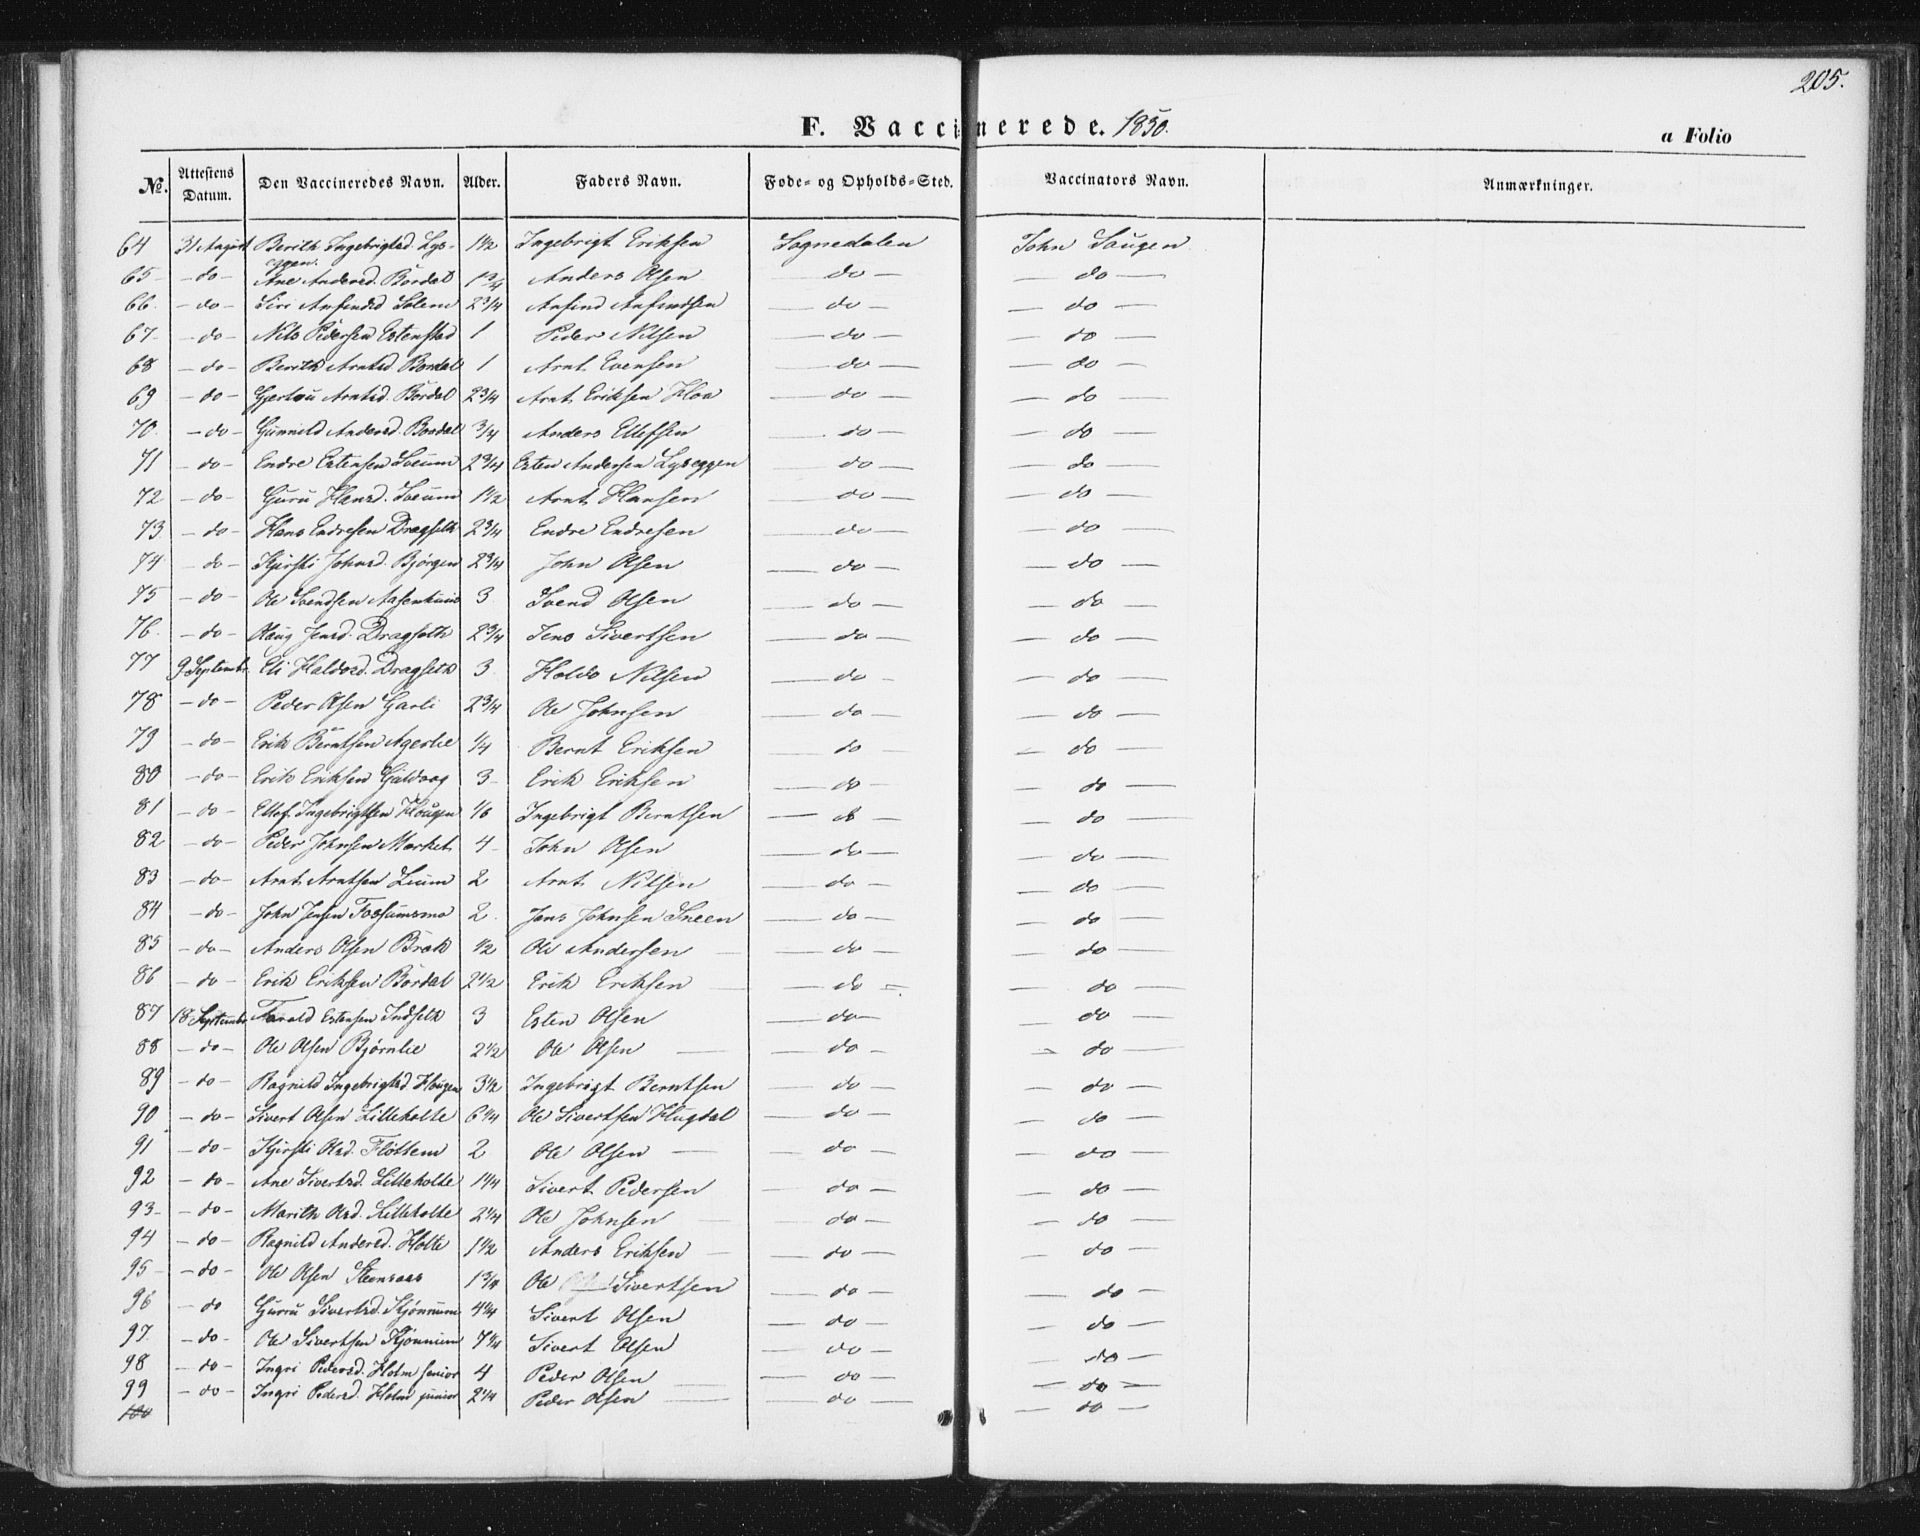 205.
F. Vaccinerede. 1850.
a Folio
No. Attestens Datum. Den Vaccineredes Navn. Alder. Faders Navn. Føde- og Opholds-Sted. Vaccinators Navn. Anmærkninger.
64 31 August Berith Ingebrigtsd. Lyseggen. 1 1/2 Ingebrigt Eriksen Sognedalen John Haugen
65 - do - Ane Andersd. Bordal 1 3/4 Anders Olsen - do - - do -
66. - do - Siri Anfindsd Solem 2 3/4 Anfind Anfindsen - do - - do -
67. - do - Nils Pedersen Estenstad 1 Peder Nilsen - do - - do -
68 - do - Berith Arntsd Bordal 1 Arnt Evensen - do - - do -
69 - do - Gjertru Arntsd. Bordal 2 3/4 Arnt Eriksen Hoa - do - - do -
70. - do - Gunnild Andersd. Bordal 3/4 Anders Ellefsen - do - - do -
71 - do - Endre Estensen Soeum 2 3/4 Esten Andersen Lyseggen - do - - do -
72 - do - Guru Hansd. Soeum 1 1/2 Arnt Hansen - do - - do -
73 - do - Hans Endresen Dragseth 2 3/4 Endre Endresen - do - - do -
74 - do - Kjersti Johnsd. Bjørgen 2 3/4 John Olsen - do - - do -
75 - do - Ole Svendsen Aasenhuus 3 Svend Olsen - do - - do -
76. - do - Olaug Jensd. Dragseth 2 3/4 Jens Sivertsen - do - - do -
77 9 Septembr. Eli Haldosd. Dragseth 3 Haldo Nilsen - do - - do -
78 - do - Peder Olsen Garli 2 3/4 Ole Johnsen - do - - do -
79 - do - Erik Berntsen Agerlie 1/4 Bernt Eriksen - do - - do -
80 - do - Erik Eriksen Gjaldaag 3 Erik Eriksen - do - - do -
81 - do - Ellef Ingebrigtsen Hougen 1/6 Ingebrigt Berntsen - do - - do -
82 - do - Peder Johnsen Market 4 John Olsen - do - - do -
83 - do - Arnt Arntsen Lium 2 Arnt Nilsen - do - - do -
84 - do - John Jensen Fossumsmo 2. Jens Johnsen Sneen - do - - do -
85 - do - Anders Olsen Bræk 1/2 Ole Andersen - do - - do -
86 - do - Erik Eriksen Bordal 2 1/2 Erik Eriksen - do - - do -
87 18 Septembr. Farald Estensen Indseth 3 Esten Olsen - do - - do -
88 - do - Ole Olsen Bjørnlie 2 1/2 Ole Olsen - do - - do -
89 - do - Ragnild Ingebrigtsd. Hougen 3 1/2 Ingebrigt Berntsen - do - - do -
90 - do - Sivert Olsen Lilleholte 6 1/4 Ole Sivertsen Hugdal - do - - do -
91 - do - Kjersti Olsd. Fløttem 2 Ole Olsen - do - - do -
92 - do - Ane Sivertsd. Lilleholte 1 1/4 Sivert Pedersen - do - - do -
93 - do - Marith Olsd. Lilleholte 2 1/4 Ole Johnsen - do - - do -
94 - do - Ragnild Andersd. Holte 1 1/2 Anders Eriksen - do - - do -
95 - do - Ole Olsen Steensaas 1 3/4 Ole Sivertsen - do - - do -
96 - do Gurru Sivertsd. Kjønnum 4 1/4 Sivert Olsen - do - - do -
97. - do - Ole Sivertsen Kjønnum 7 1/4 Sivert Olsen - do - - do -
98 - do - Ingri Pedersd. Holm senior 4 Peder Olsen - do - - do -
99 - do - Ingri Pedersd. Holm junior 2 1/4 Peder Olsen - do - - do -
100 - do -